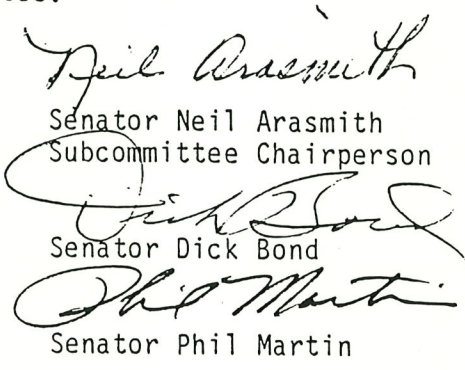 Neil Arasmith
Senator Neil Arasmith
Subcommittee Chairperson
Dick Bond
Senator Dick Bond
Phil Martin
Senator Phil Martin